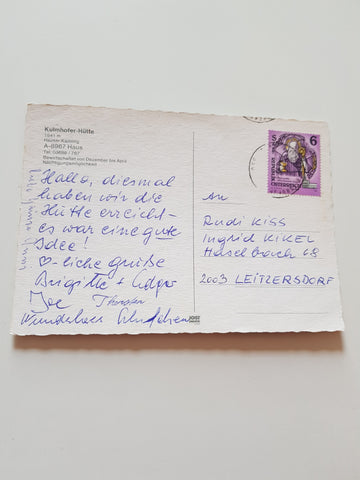 Kulmhofer-Hütte
1541 m
Hauser-Kaibling
A-8967 Haus
Tel. 03686 / 767
Bewirtschaftet von Dezember bis April
Nächtigungsmöglichkeit
Hallo, diesmal
haben wir die
Hütte erreicht -
es war eine gute
Idee!
♡-liche Grüße
Brigitte +
Joe Thorsten
6
An
Rudi KISS
Ingrid KIKEL
Haselbach 68
2003 LEITZERSDORF